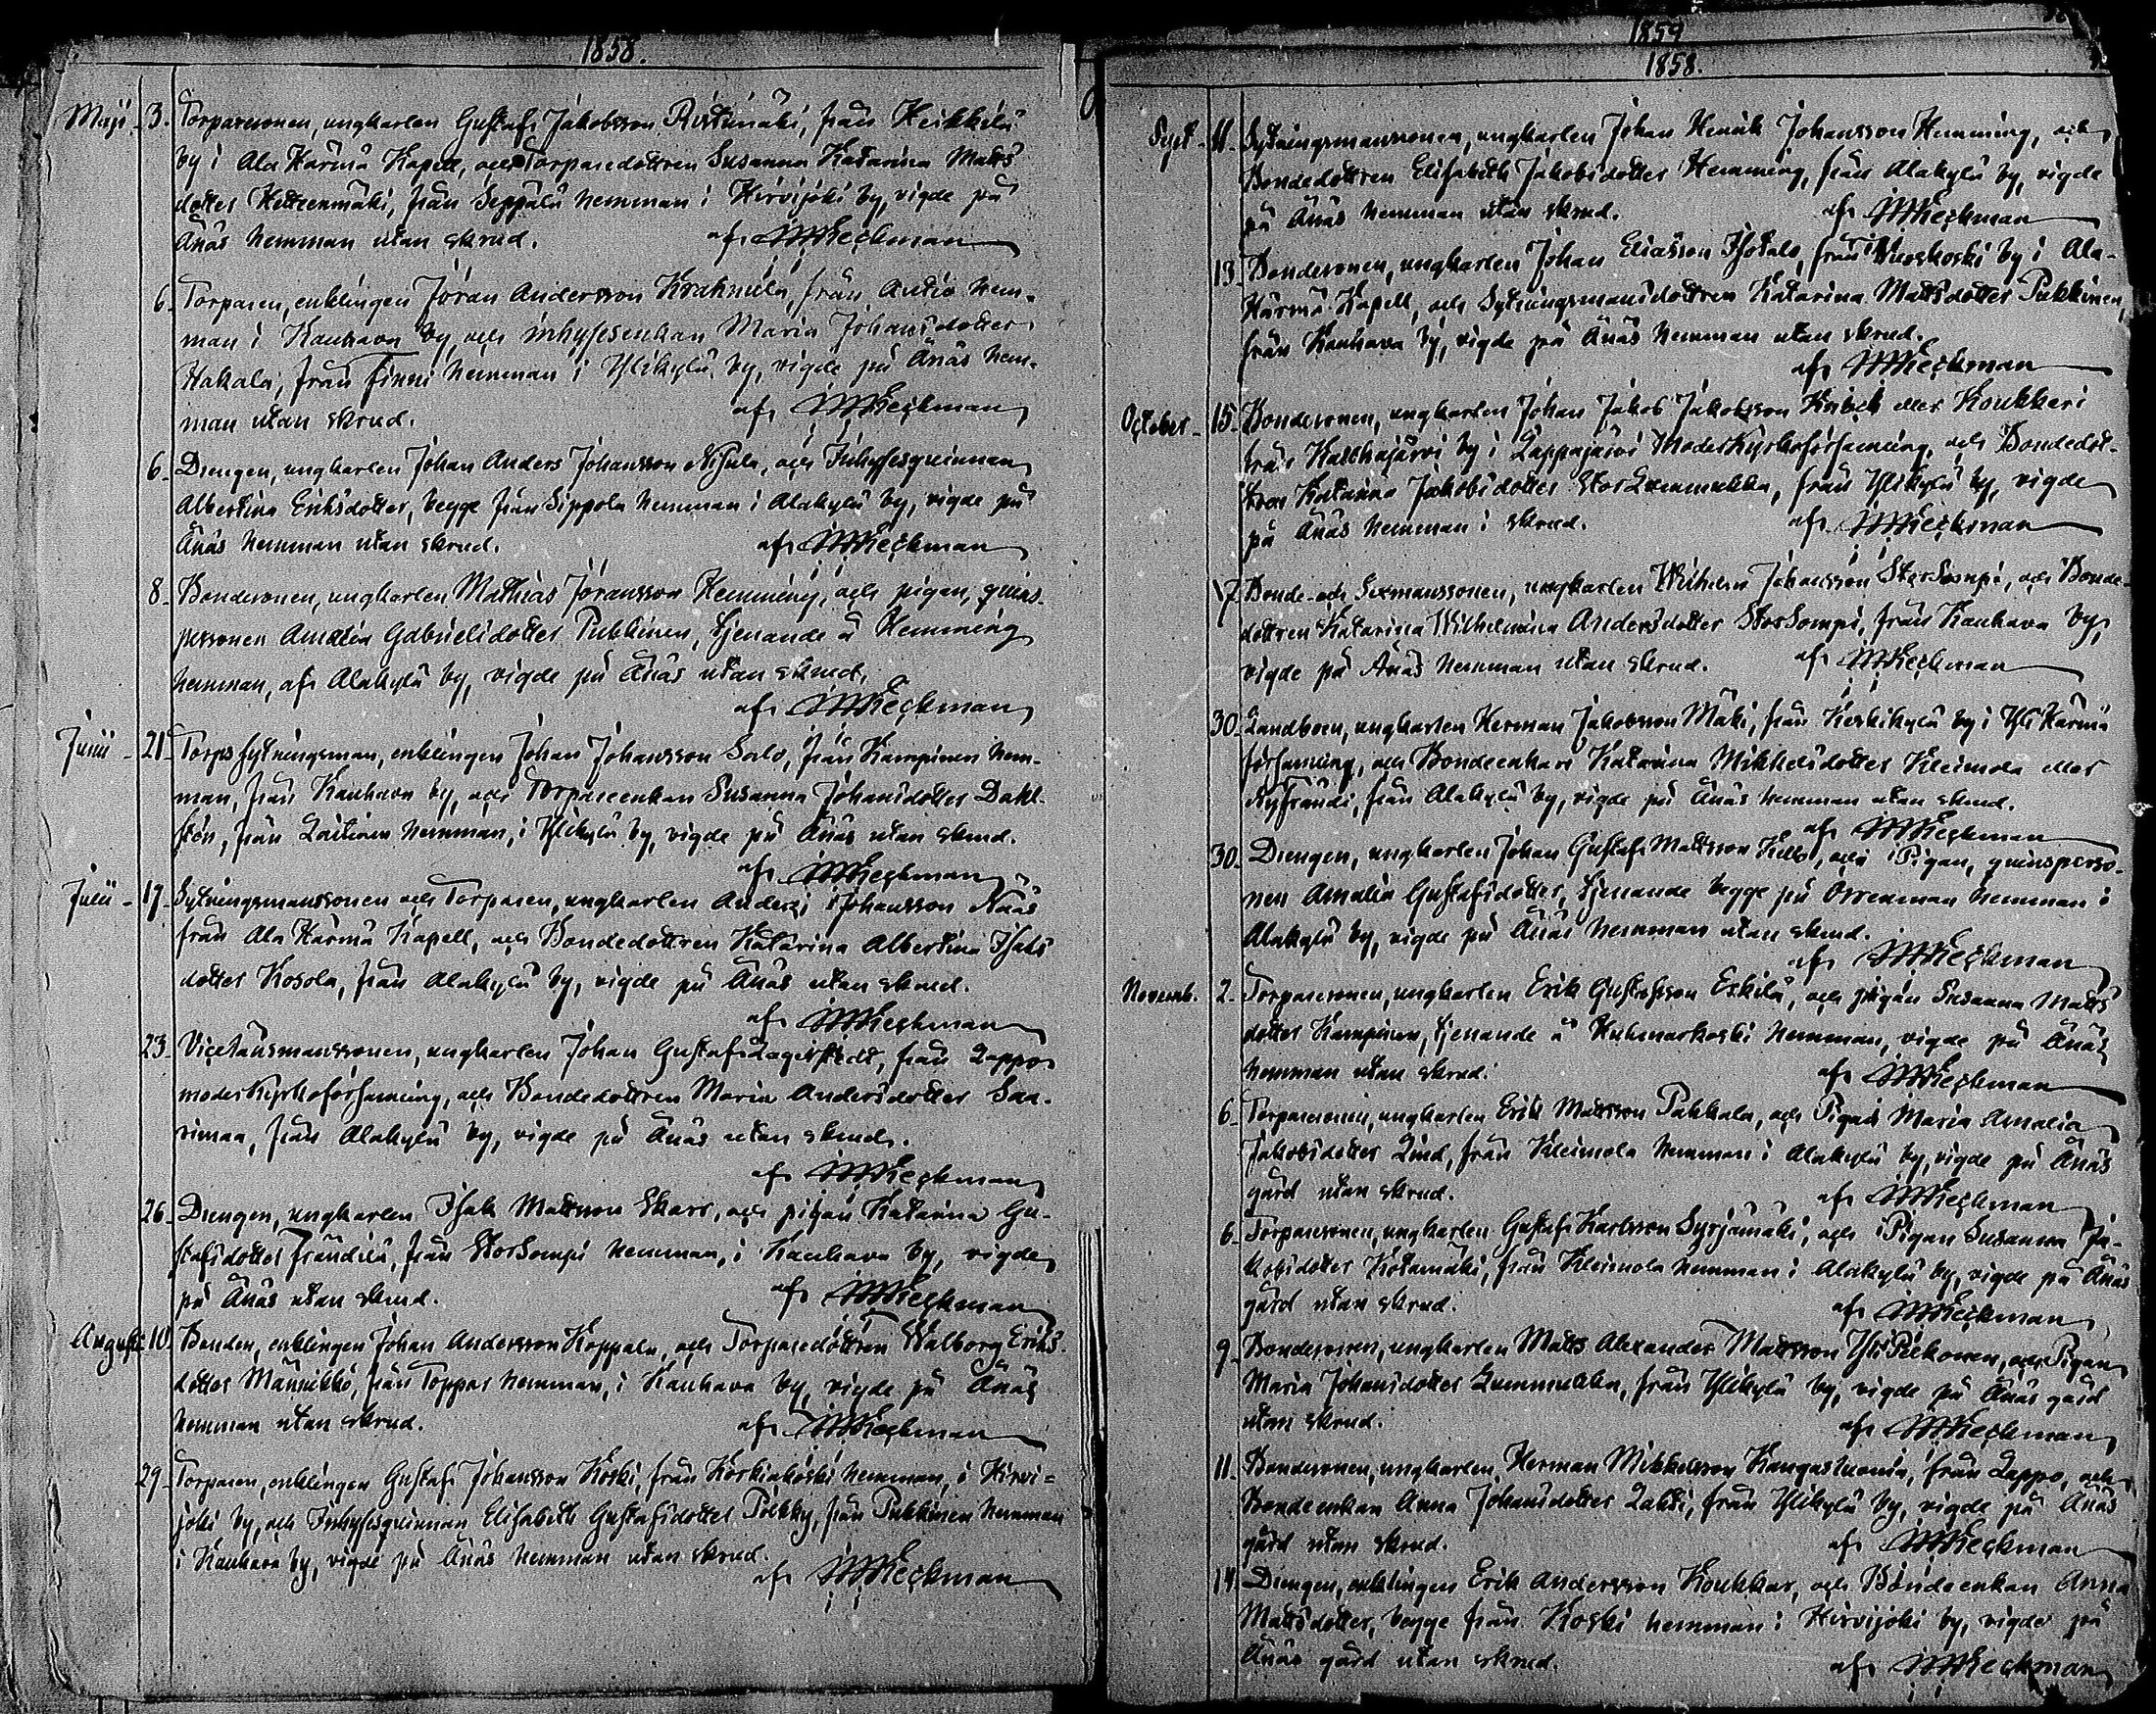 1858.
Maji 3. Torparesonen, ungkarlen Gustaf Jakobsson Ristimäki, från Heikkilä
by i Ala Härmä Kapell, och Torparedottren Susanna Katarina Matts
dotter från Seppälä hemman i Hirvijoki by, vigde på
Änäs hemman utan skrud. af
6. Torparen, enklingen Jöran Andersson Kraknula, från Antio hem-
man i Kauhava by och inhysesenkan Maria Johansdotter
Hakala, från Finni hemman i Ylikylä by, vigde på Änäs hem-
man utan skrud. af
6. Drengen, ungkarlen Johan Anders Johansson och Inhysesqvinnan
Albertina Eriksdotter, begge från Sippola hemman i Alakylä by, vigde på
Änäs hemman utan skrud. af
8. Bondesonen, ungkarlen Mathias Jöransson Hemming, och pigan, qvins-
personen Gabrielsdotter Pukkinen, tjenande å Hemming
hemman, af Alakylä by, vigde på Änäs utan skrud.
af
Junii 21. Torpsytningsman, enklingen Johan Johansson Salo, från Kampinen hem-
man, från Kauhava by, och Torpareenkan Susanna Johansdotter Dahl-
sten, från Laitinen hemman, i Ylikylä by, vigde på Änäs utan skrud.
af
Julii 17. Sytningsmanssonen och Torparen, ungkarlen Anders Johansson Nääs
från Ala Härmä Kapell, och Bondedottren Katarina Albertina Isaks
dotter Kosola, från Alakylä by, vigde på Änäs utan skrud.
af
23. Vicelänsmanssonen, ungkarlen Johan Gustaf Lagerstedt, från Lappo
moderkyrkoförsamling, och Bondedottren Maria Andersdotter Saa-
rimaa, från Alakylä by, vigde på Änäs utan skrud.
af
26. Drengen, ungkarlen Isak Mattsson Skars, och pigan Katarina Gu-
stafsdotter Frändilä, från StorSompi hemman, i Kauhava by, vigde
på Änäs utan skrud. af
August. 10. Bonden, enklingen Johan Andersson Koppala, och Torparedottren Walborg Eriks
dotter Männikkö, från Toppar hemman, i Kauhava by, vigde på Änäs
hemman utan skrud. af
29. Torparen, enklingen Gustaf Johansson Koski, från Körkiakoski hemman, i Hirvi=
joki by, och Inhysesqvinnan Elisabeth Gustafsdotter Pölkky, från Pukkinen hemman
i Kauhava by, vigde på Änäs hemman utan skrud.
af
1859
1858.
Sept. 11. Sytningsmanssonen, ungkarlen Johan Henrik Johansson Hemming, och
Bondedottren Elisabeth Jakobsdotter Hemming, från Alakylä by, vigde
på Änäs hemman utan skrud. af
13. Bondesonen, ungkarlen Johan Eliasson Isotalo, från Vuoskoski by i Ala-
Härmä Kapell, och Sytningsmansdottren Katarina Mattsdotter Pukkinen,
från Kauhava by, vigde på Änäs hemman utan skrud.
af
October 15. Bondesonen, ungkarlen Johan Jakob Jakobsson eller Koukkari
från by i Lappajärvi Moderkyrkoförsamling, och Bondedot-
tren Katarina Jakobsdotter StorLuomukka, från Ylikylä by, vigde
på Änäs hemman i skrud. af
17. Bonde- och Sexmanssonen, ungkarlen Wilhelm Johansson StorSompi, och Bonde-
dottren Katarina Wilhelmina Andersdotter StorSompi, från Kauhava by,
vigde på Änäs hemman utan skrud. af
30. Landboen, ungkarlen Herman Jakobsson Mäki, från Keskikylä by i Yli Härmä
församling, och Bondeenkan Katarina Mikkelsdotter Kleimola eller
Nyfrändi, från Alakylä by, vigde på Änäs hemman utan skrud.
af
30. Drengen, ungkarlen Johan Gustaf Mattsson Kulbo, och Pigan, qvinsperso-
nen Amalia Gustafsdotter, tjenande begge på Orrenmaa hemman i
Alakylä by, vigde på Änäs hemman utan skrud.
af
Novemb. 2. Torparesonen, ungkarlen Erik Gustafsson Eskilä, och pigan Susanna Matts
dotter Kampinen, tjenande å Ruhmarkoski hemman, vigde på Änäs
hemman utan skrud. af
6. Torparesonen, ungkarlen Erik Mattsson Pakkala, och Pigan Maria Amalia
Jakobsdotter Lind, från Kleimola hemman i Alakylä by, vigde på Änäs
gård utan skrud. af
6. Torparesonen, ungkarlen Gustaf Karlsson Syrjämäki, och Pigan Susanna Ja-
kobsdotter Kotamäki, från Kleimola hemman i Alakylä by, vigde på Änäs
gård utan skrud. af
9. Bondesonen, ungkarlen Matts Alexander Mattsson YliPeckonen, och Pigan
Maria Johansdotter Luomukka, från Ylikylä by, vigde på Änäs gård
utan skrud. af
11. Bondesonen, ungkarlen Herman Mikkelsson Kangasluoma, från Lappo, och
Bondeenkan Anna Johansdotter Lahti, från Ylikylä by, vigde på Änäs
gård utan skrud. af
14. Drengen, enklingen Erik Andersson Koukkar, och Bondeenkan Anna
Mattsdotter, begge från Koski hemman i Hirvijoki by, vigde på
Änäs gård utan skrud. af